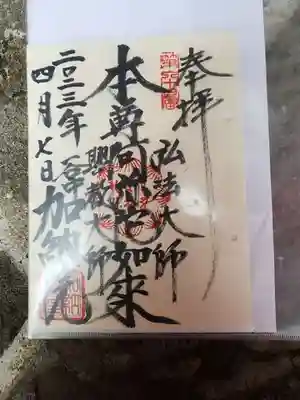 奉拝
弘法大師
本尊阿弥陀如来
興教大師
二〇二三年
四月七日